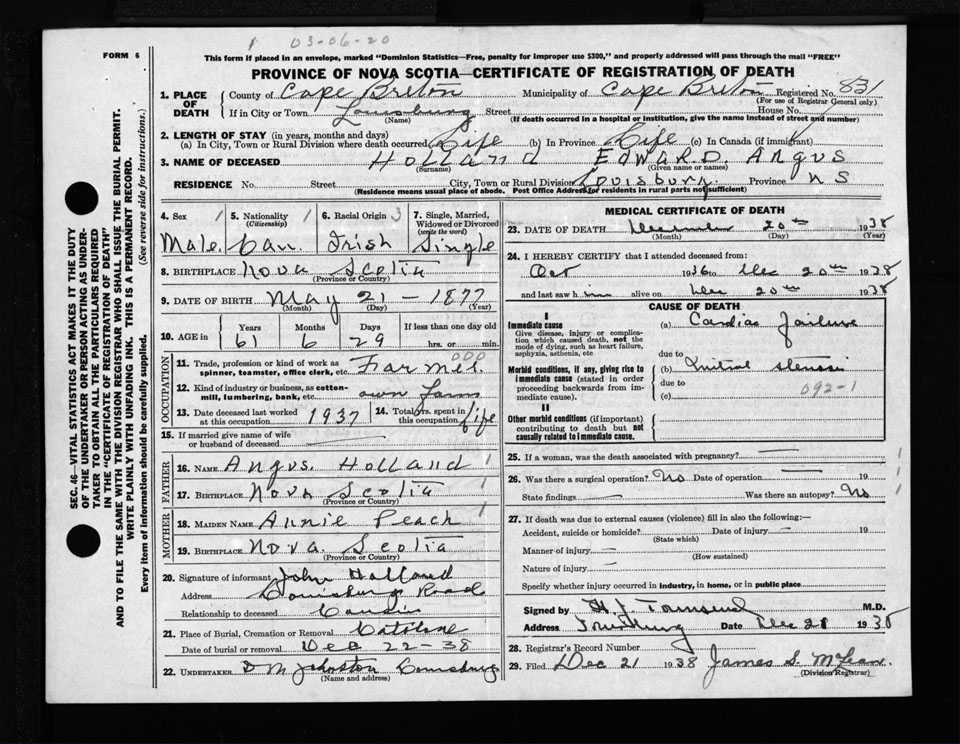 03-06-20
FORM 6
This form if placed in an envelope, marked "Dominion Statistics—Free, penalty for improper use $300," and properly addressed will pass through the mail "FREE"
PROVINCE OF NOVA SCOTIA—CERTIFICATE OF REGISTRATION OF DEATH
SEC. 46—VITAL STATISTICS ACT MAKES IT THE DUTY
OF THE UNDERTAKER OR PERSON ACTING AS UNDER-
TAKER TO OBTAIN ALL THE PARTICULARS REQUIRED
IN THE "CERTIFICATE OF REGISTRATION OF DEATH"
AND TO FILE THE SAME WITH THE DIVISION REGISTRAR WHO SHALL ISSUE THE BURIAL PERMIT.
WRITE PLAINLY WITH UNFADING INK. THIS IS A PERMANENT RECORD.
Every item of information should be carefully supplied. (See reverse side for instructions.)
1. PLACE OF DEATH County of Cape Breton Municipality of Cape Breton Registered No. 831
(For use of Registrar General only)
If in City or Town Louisburg Street House No.
(Name) (If death occurred in a hospital or institution, give the name instead of street and number)
2. LENGTH OF STAY (in years, months and days)
(a) In City, Town or Rural Division where death occurred Life (b) In Province Life (c) In Canada (if immigrant)
3. NAME OF DECEASED Holland Edward Angus
(Surname) (Given name or names)
RESIDENCE No. Street City, Town or Rural Division Louisburg Province NS
(Residence means usual place of abode. Post Office Address for residents in rural parts not sufficient)
4. Sex 1 5. Nationality 1 6. Racial Origin 3 7. Single, Married,
(Citizenship) Widowed or Divorced
(write the word)
Male Can. Irish Single
8. BIRTHPLACE Nova Scotia
(Province or Country)
9. DATE OF BIRTH May 21 - 1877
(Month) (Day) (Year)
10. AGE in Years Months Days If less than one day old
61 6 29 hrs. or min.
OCCUPATION
11. Trade, profession or kind of work as Farmer 000
spinner, teamster, office clerk, etc.
12. Kind of industry or business, as cotton-
mill, lumbering, bank, etc. own Farm
13. Date deceased last worked at this occupation 1937 14. Total yrs. spent in this occupation life
15. If married give name of wife
or husband of deceased
FATHER
16. NAME Angus Holland 1
17. BIRTHPLACE Nova Scotia 1
(Province or Country)
MOTHER
18. MAIDEN NAME Annie Peach 1
19. BIRTHPLACE Nova Scotia
(Province or Country)
20. Signature of informant John Holland
Address Louisburg Road
Relationship to deceased Cousin
21. Place of Burial, Cremation or Removal Catalone
Date of burial or removal Dec 22-38
22. UNDERTAKER D M Johnston Louisburg
(Name and address)
MEDICAL CERTIFICATE OF DEATH
23. DATE OF DEATH December 20th 1938
(Month) (Day) (Year)
24. I HEREBY CERTIFY that I attended deceased from:
Oct 1936 to Dec 20th 1938
and last saw him alive on Dec 20th 1938
CAUSE OF DEATH
I
Immediate cause (a) Cardiac Failure
Give disease, injury or complica-
tion which caused death, not the
mode of dying, such as heart failure,
asphyxia, asthenia, etc due to
Morbid conditions, if any, giving rise to (b) Mitral stenosis
immediate cause (stated in order due to
proceeding backwards from im- 092-1
mediate cause). (c)
II
Other morbid conditions (if important)
contributing to death but not
causally related to immediate cause.
25. If a woman, was the death associated with pregnancy? 1
26. Was there a surgical operation? No Date of operation 19 1
State findings Was there an autopsy? No 1
27. If death was due to external causes (violence) fill in also the following:—
Accident, suicide or homicide? Date of injury 19
(State which)
Manner of injury
(How sustained)
Nature of injury
Specify whether injury occurred in industry, in home, or in public place
Signed by H. J. Townsend M.D.
Address Date Dec 21 1938
28. Registrar's Record Number
29. Filed Dec 21 1938 James S. McLean
(Division Registrar)